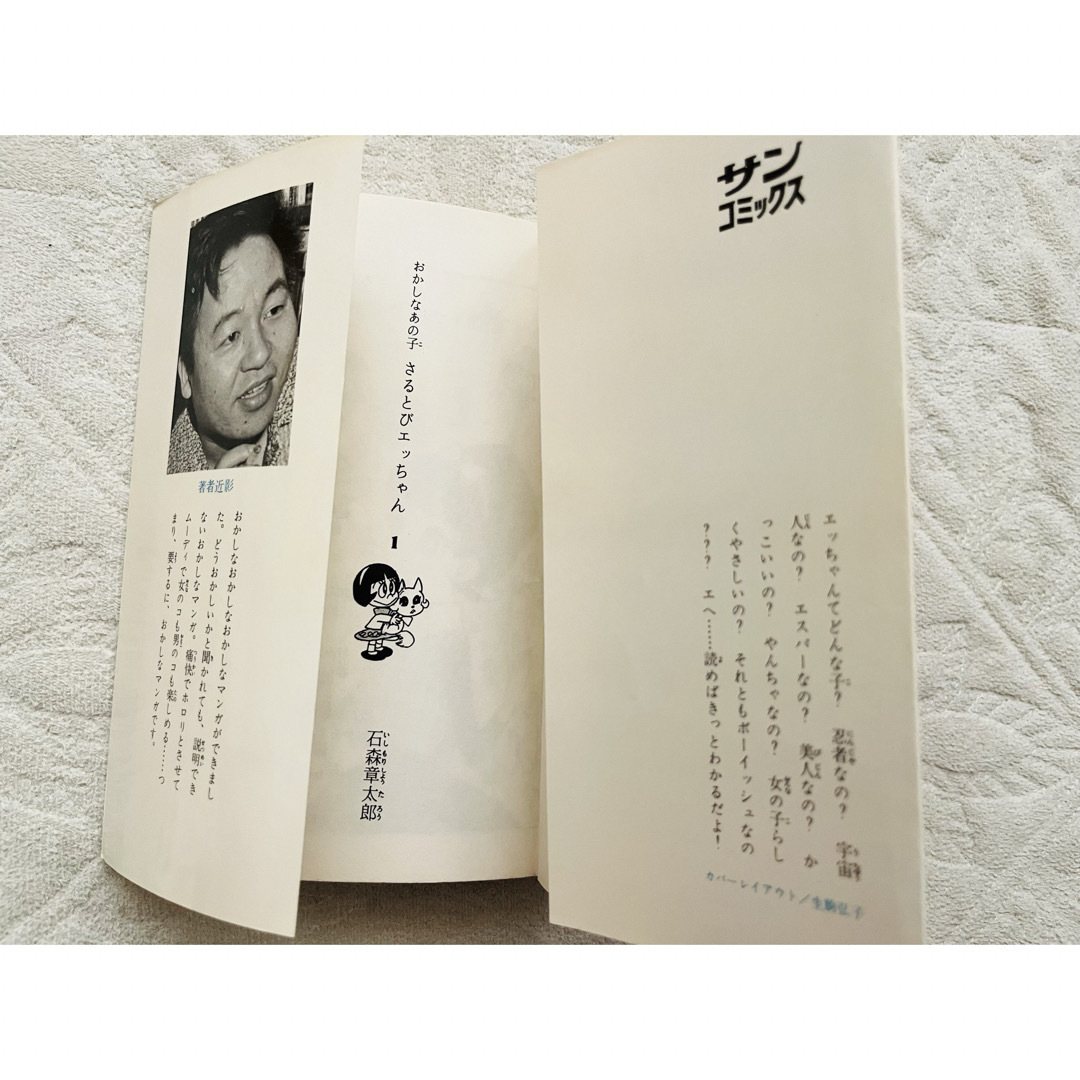 サン
コミックス
エッちゃんてどんな子？　忍者なの？　宇宙
人なの？　エスパーなの？　美人なの？　か
っこいいの？　やんちゃなの？　女の子らし
くやさしいの？　それともボーイッシュなの
？？？　エへ……読めばきっとわかるだよ！
カバーレイアウト／生駒弘子
おかしなあの子　さるとびエッちゃん　1
石森章太郎
著者近影
おかしなおかしなおかしなマンガができまし
た。どうおかしいかと聞かれても、説明でき
ないおかしなマンガ。痛快でホロリとさせて
ムーディで女のコも男のコも楽しめる……つ
まり、要するに、おかしなマンガです。